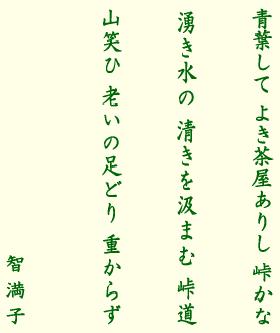 青葉して よき茶屋ありし 峠かな
湧き水の 清きを汲まむ 峠道
山笑ひ 老いの足どり 重からず
智満子